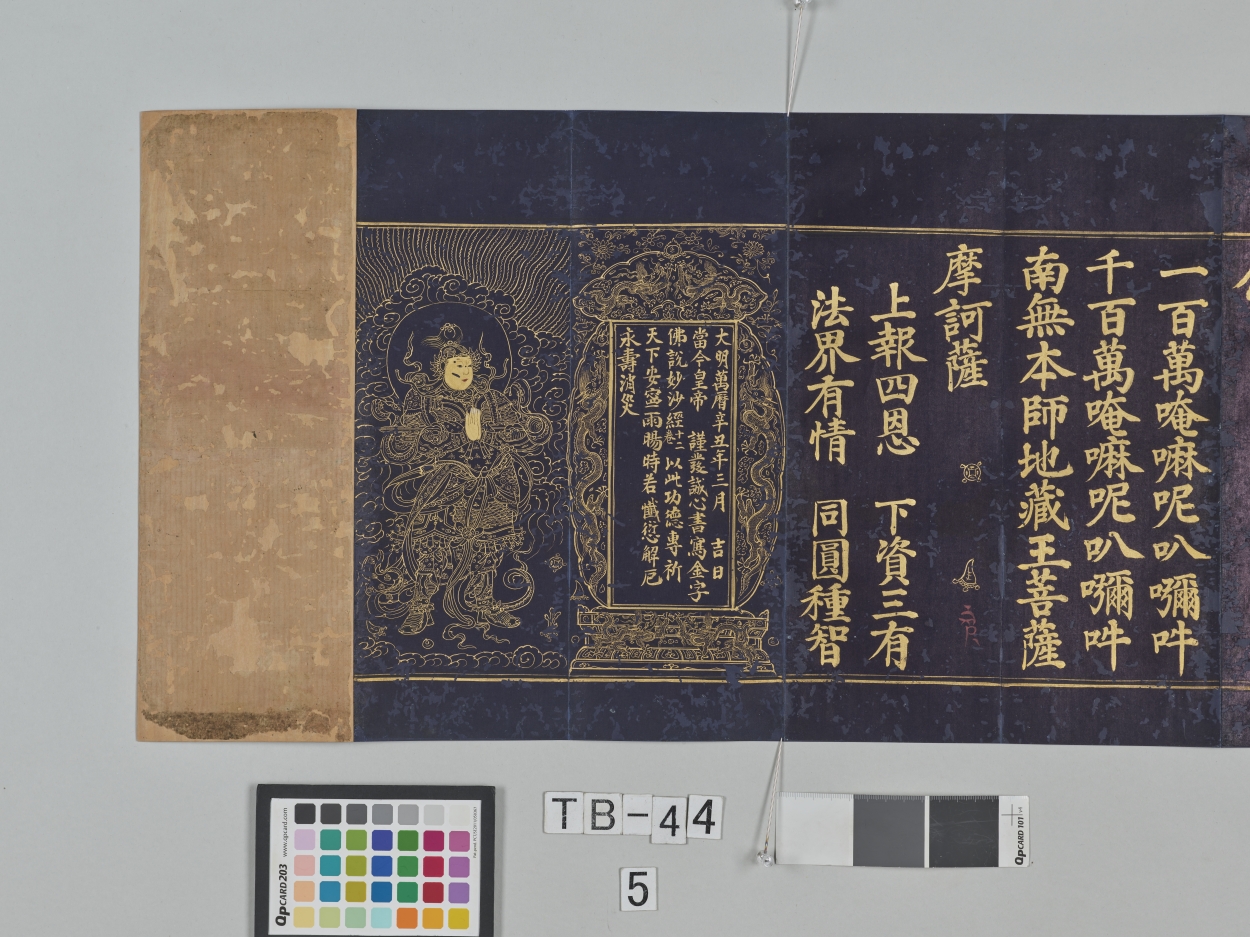 一百萬唵嘛呢叭囕吽
千百萬唵嘛呢叭囕吽
南無本師地藏王菩薩
摩訶薩
上報四恩 下資三有
法界有情 同圓種智
大明萬曆辛丑年三月 吉日
當今皇帝 謹發誠心書寫金字
佛說妙沙經十二卷 以此功德專祈
天下安寧雨暘時若懺愆解厄
永壽消災
QpCARD 203
www.qpcard.com
TB-44
5
QpCARD 101 v4